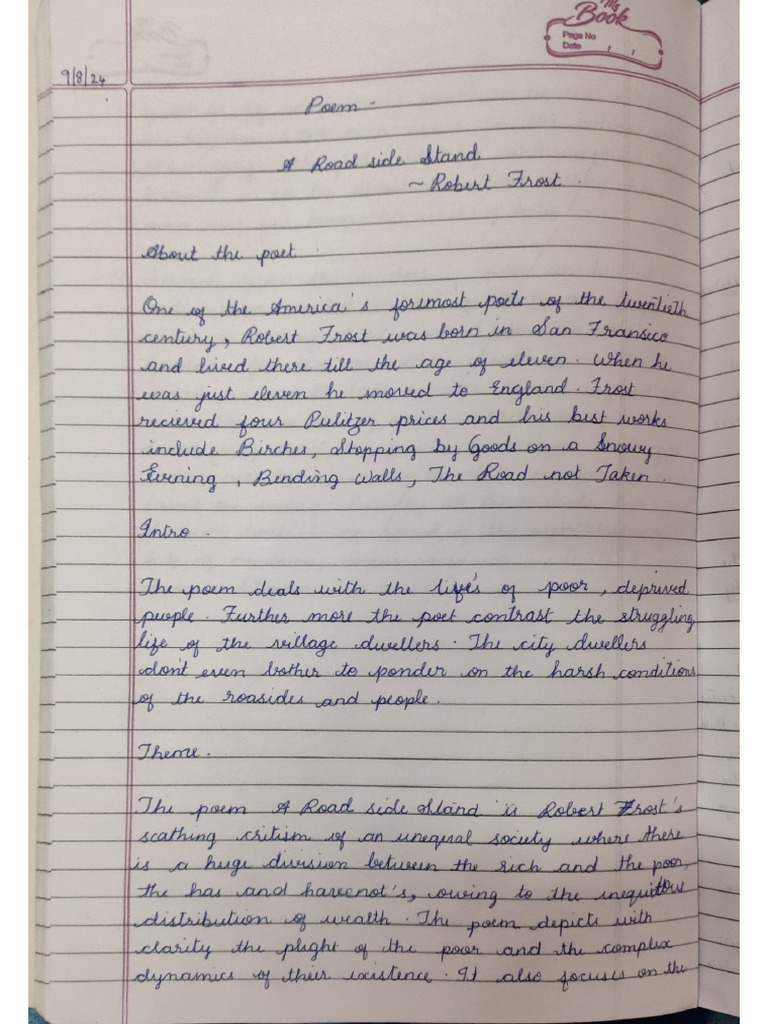 My
Book
Page No
Date , ,
9/8/24
Poem -
A Road side Stand
~ Robert Frost .
About the poet .
One of the America's foremost poets of the twentieth
century, Robert Frost was born in San Fransico
and lived there till the age of eleven. When he
was just eleven he moved to England. Frost
recieved four Pulitzer prices and his best works
include Birches, Stopping by Goods on a Snowy
Evening , Bending Walls, The Road not Taken .
Intro .
The poem deals with the life's of poor , deprived
people. Further more the poet contrast the struggling
life of the village dwellers. The city dwellers
don't even bother to ponder on the harsh conditions
of the roasides and people.
Theme .
The poem A Road side Stand is Robert Frost's
scathing critism of an unequal society where there
is a huge division between the rich and the poor,
the has and havenot's, owing to the inequitous
distribution of wealth. The poem depicts with
clarity the plight of the poor and the complex
dynamics of their existence. It also focuses on the